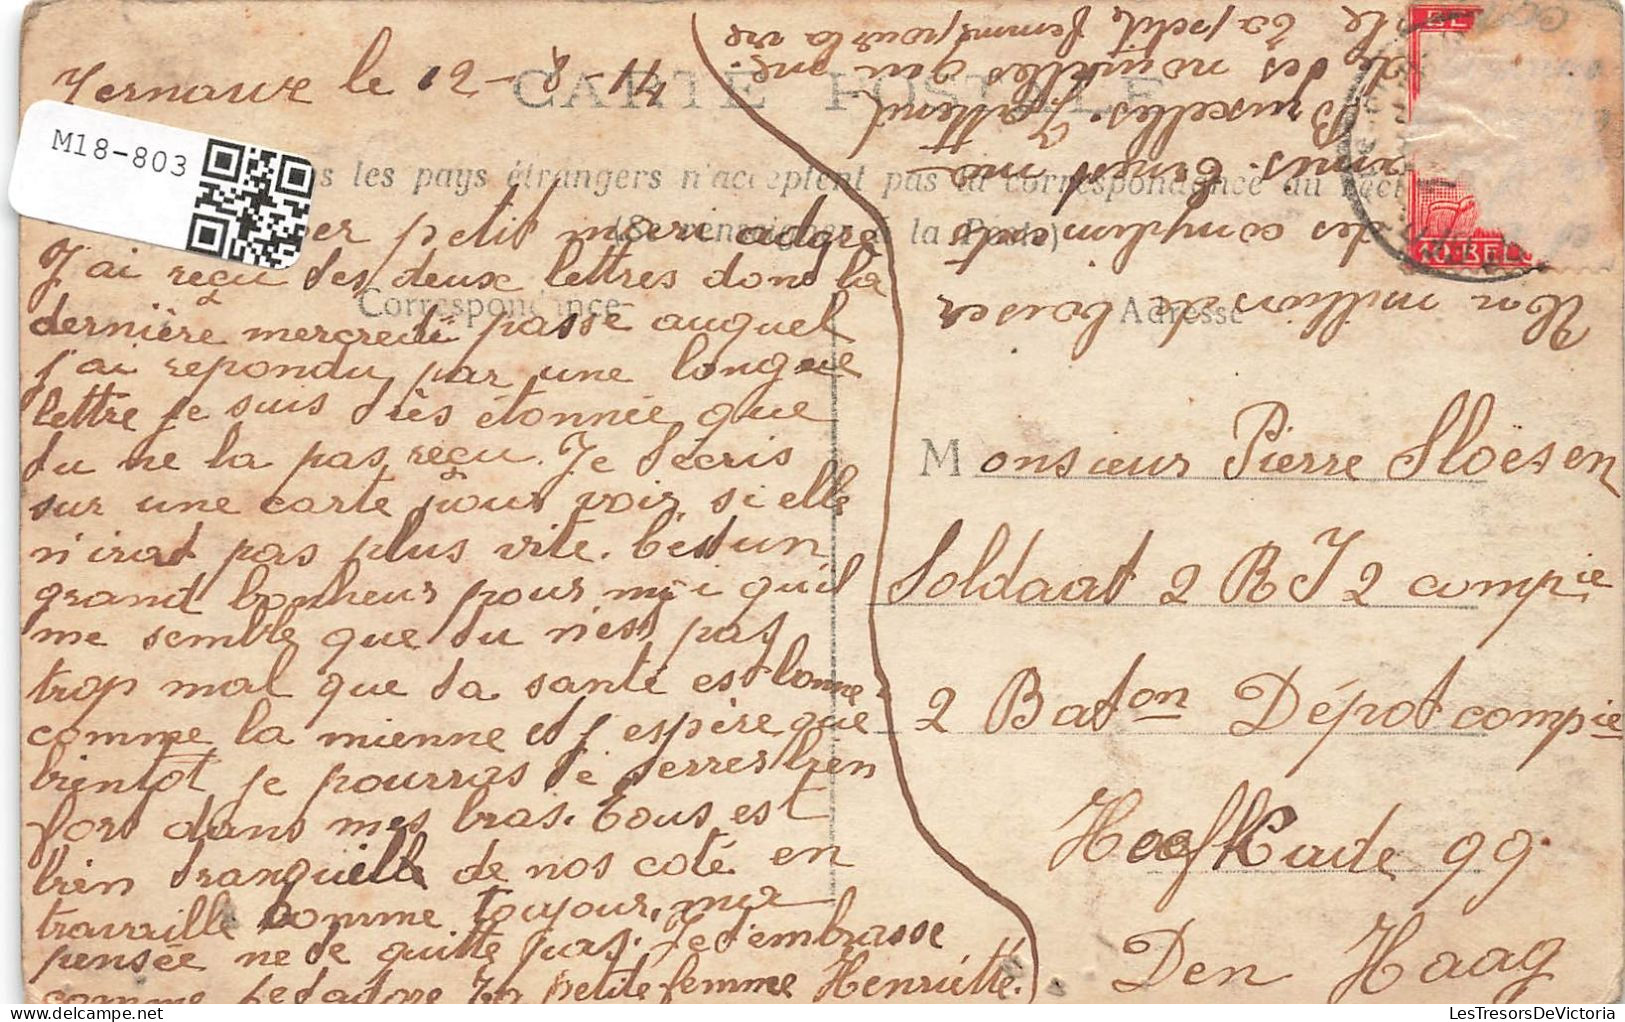 Jernauve le 12-8-14
CARTE POSTALE
M18-803
s les pays étrangers n'acceptent pas la correspondance au recto
(Se renseigner à la Poste)
er petit meri adoré
J'ai reçu tes deux lettres dont la
Correspondance
dernière mercredi passé auquel
j'ai repondu par une longue
lettre je suis très étonnée que
tu ne la pas reçu. Je t'écris
sur une carte pour voir, si elle
n'irat pas plus vite. C'est un
grand bonheur pour moi qu'il
me semble que tu n'est pas
trop mal que ta santé est bonne
comme la mienne et j'espère que
bientot je pourras te serrer bien
fort dans mes bras. Tous est
bien tranquille de nos coté en
travaille comme toujour, ma
pensée ne te quitte pas. Je t'embrasse
comme je t'adore Ta petite femme Henriette.
Un million de baiser
des compliments
Bruxelles.
de des nouvelles
Ta petite femme pour la vie
Adresse
Monsieur Pierre Sloësen
Soldaat 2 R J 2 compie
2 Baton Dépot compie
Hoefkade 99.
Den Haag
BE
10·BEL
LesTresorsDeVictoria.com